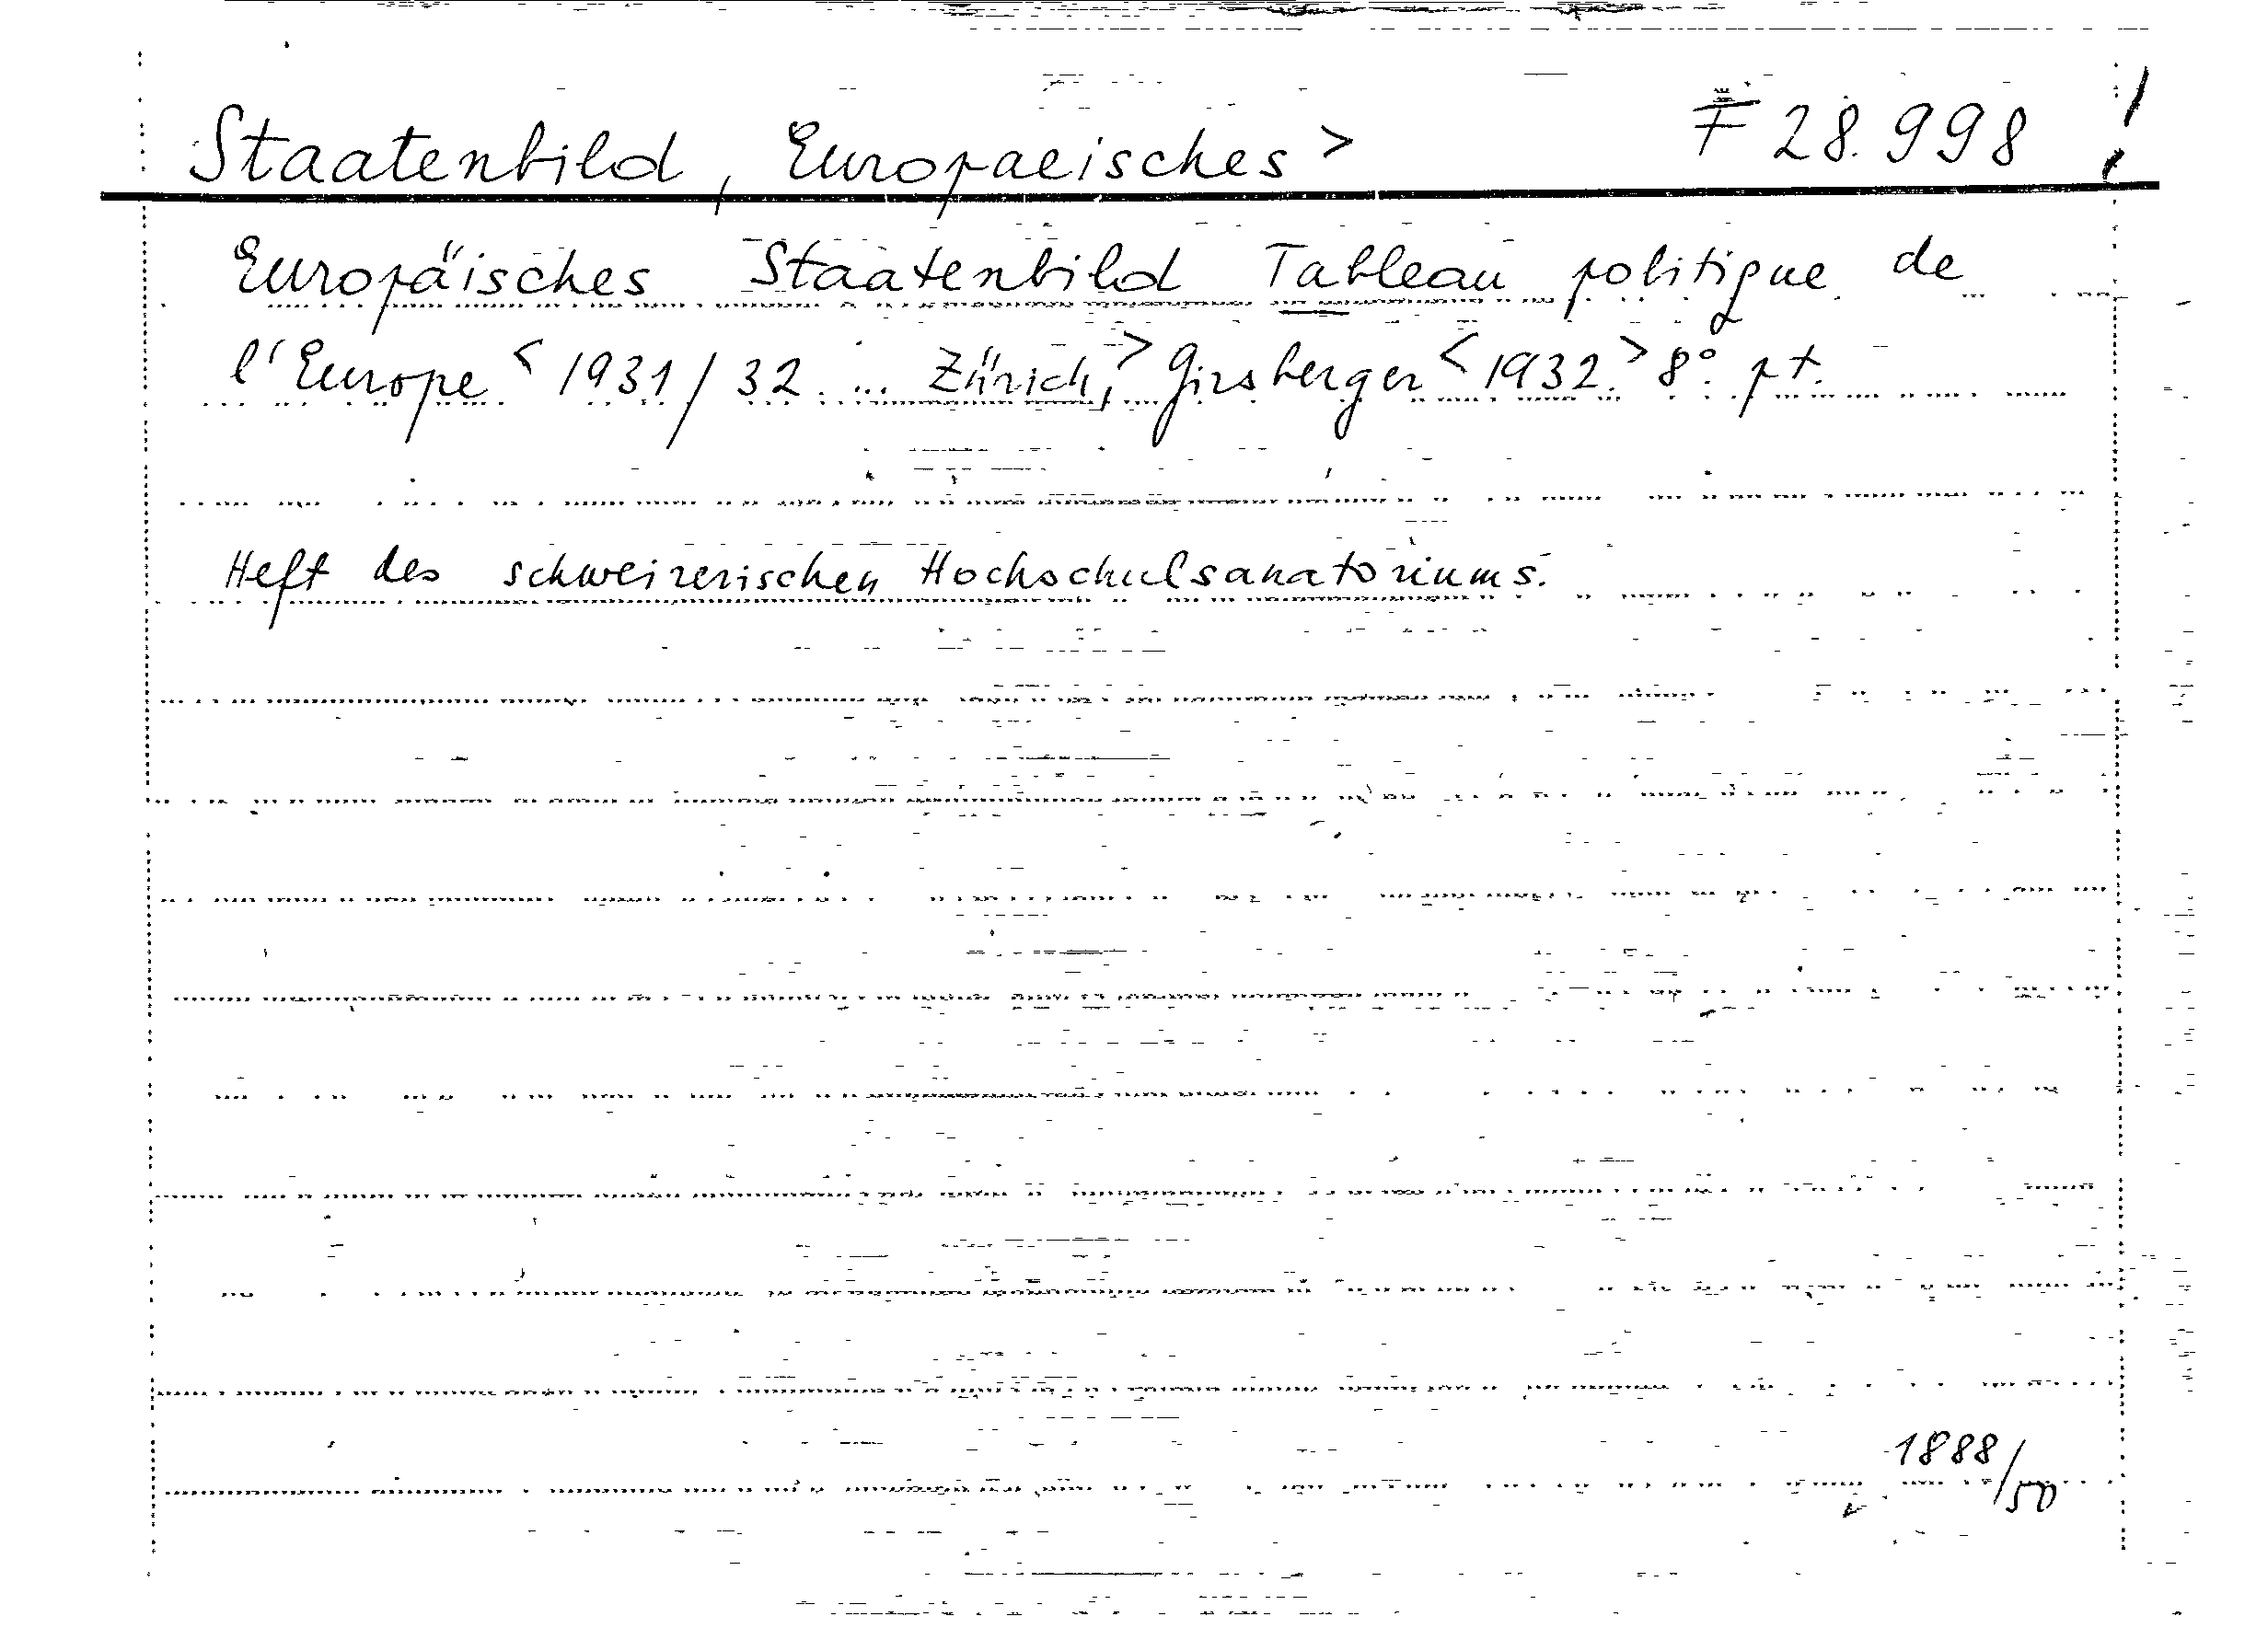 Staatenbild, Europaeisches> F 28.998 !
Europäisches Staatenbild Tableau politique de
l'Europe <1931/32 ... Zürich,> Girsberger <1932.> 8° pt.
Heft des schweizerischen Hochschulsanatoriums.
1888/50